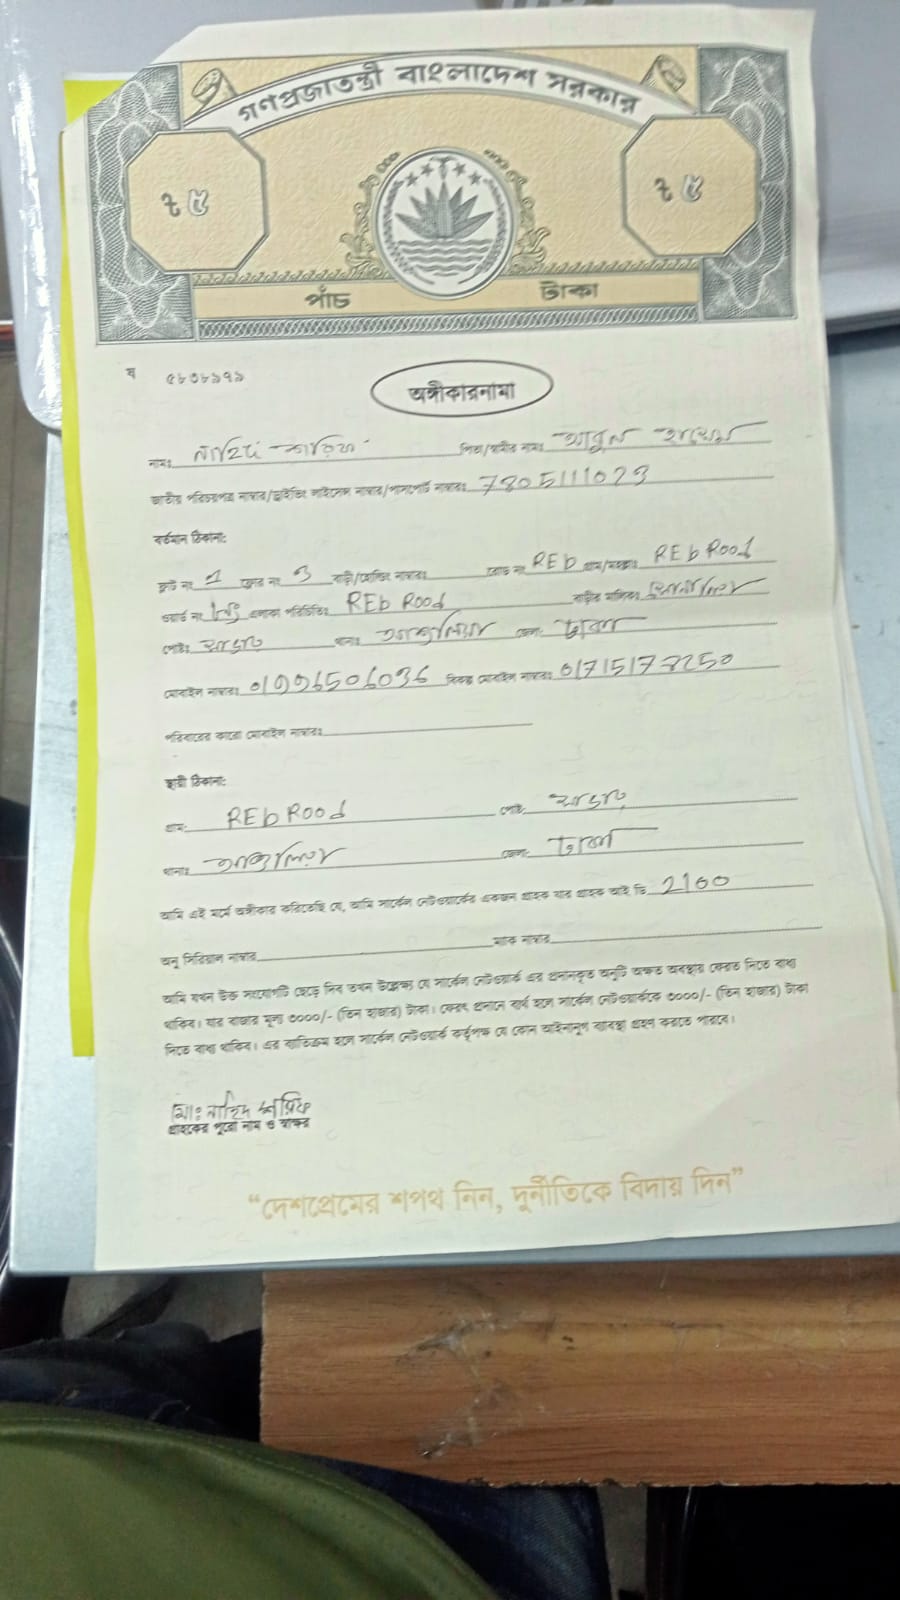 গণপ্রজাতন্ত্রী বাংলাদেশ সরকার
৳ ৫ ৳ ৫
পাঁচ টাকা
ষ ৫৮৩৮৯৭৯
অঙ্গীকারনামা
নামঃ নাহিদ শরিফ পিতা/স্বামীর নামঃ আবুল হাসেম
জাতীয় পরিচয়পত্র নাম্বার/ড্রাইভিং লাইসেন্স নাম্বার/পাসপোর্ট নাম্বারঃ 7805111023
বর্তমান ঠিকানা:
ফ্লাট নং 1 ফ্লোর নং 3 বাড়ী/হোল্ডিং নাম্বারঃ রোড নং REb গ্রাম/মহল্লাঃ REb Rood
ওয়ার্ড নং এলাকা পরিচিতিঃ REb Rood বাড়ীর মালিকঃ
পোষ্টঃ থানাঃ আশুলিয়া জেলা: ঢাকা
মোবাইল নাম্বারঃ 01996506036 বিকল্প মোবাইল নাম্বারঃ
পরিবারের কারো মোবাইল নাম্বারঃ
স্থায়ী ঠিকানা:
গ্রাম: REb ROOd পোষ্ট:
থানাঃ আশুলিয়া জেলা: ঢাকা
আমি এই মর্মে অঙ্গীকার করিতেছি যে, আমি সার্কেল নেটওয়ার্কের একজন গ্রাহক যার গ্রাহক আই ডি 2160
অনু সিরিয়াল নাম্বার ম্যাক নাম্বার
আমি যখন উক্ত সংযোগটি ছেড়ে দিব তখন উল্লেক্ষ্য যে সার্কেল নেটওয়ার্ক এর প্রদানকৃত অনুটি অক্ষত অবস্থায় ফেরত দিতে বাধ্য
থাকিব। যার বাজার মূল্য ৩০০০/- (তিন হাজার) টাকা। ফেরৎ প্রদানে ব্যর্থ হলে সার্কেল নেটওয়ার্ককে ৩০০০/- (তিন হাজার) টাকা
দিতে বাধ্য থাকিব। এর ব্যতিক্রম হলে সার্কেল নেটওয়ার্ক কর্তৃপক্ষ যে কোন আইনানুগ ব্যবস্থা গ্রহণ করতে পারবে।
মোঃ নাহিদ শরিফ
গ্রাহকের পুরো নাম ও স্বাক্ষর
“দেশপ্রেমের শপথ নিন, দুর্নীতিকে বিদায় দিন”